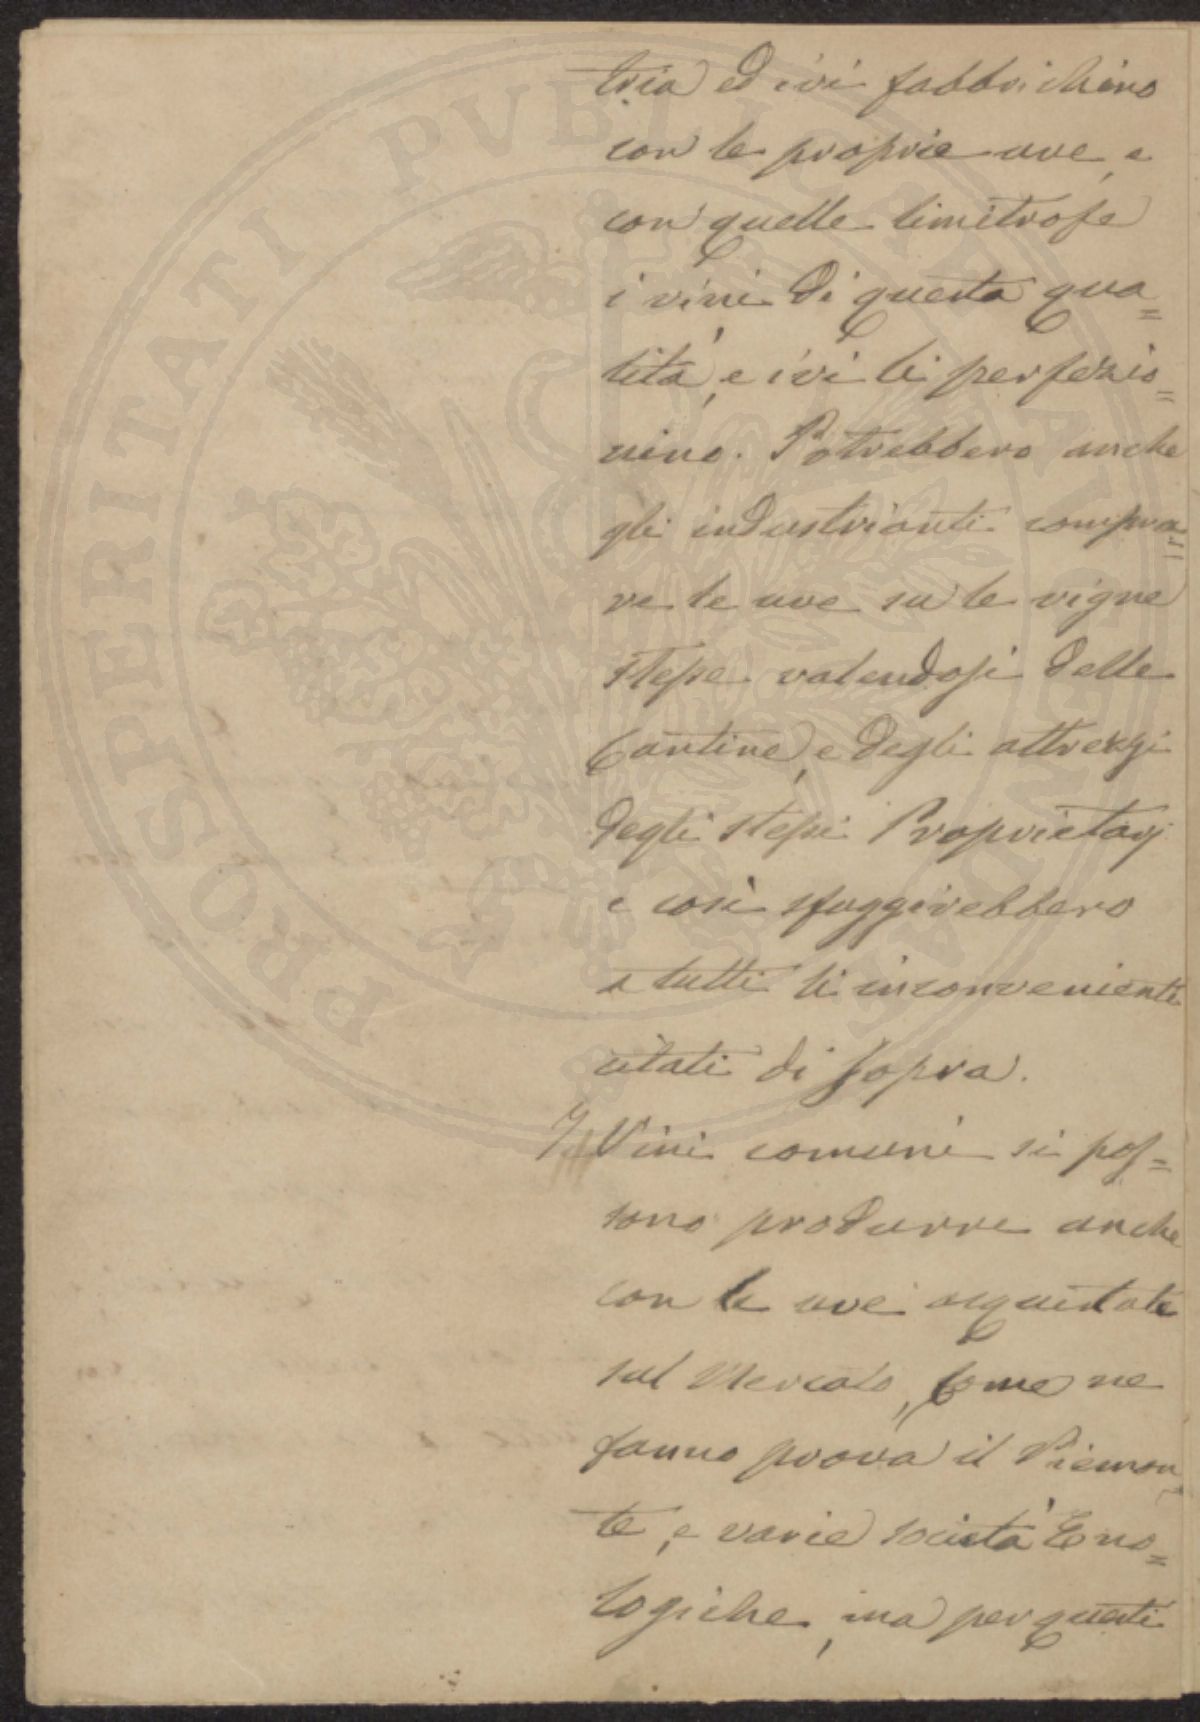 tria ed ivi fabbrichino
con le proprie uve, e
con quelle limitrofe
i vini di questa qua=
lità, e ivi li perfezio=
nino. Potrebbero anche
gli industrianti compra=
re le uve su le vigne
stesse valendosi delle
Cantine, e degli attrezzi
degli stessi Proprietarj
e così sfuggirebbero
a tutti li inconvenienti
citati di sopra.
I Vini comuni si pos=
sono produrre anche
con le uve acquistate
sul Mercato, come ne
fanno prova il Piemon=
te, e varie società Eno=
logiche, ma per questi
PROSPERITATI PVBLICAE AVGENDAE